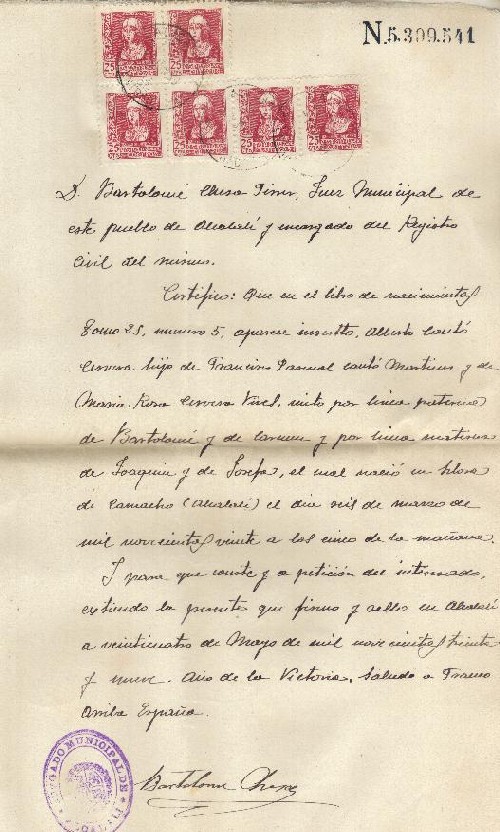 N.5.309.541
D. Bartolomé Mesa Giner, Juez Municipal de
este pueblo de Alcalalí y encargado del Registro
Civil del mismo.
Certifico: Que en el libro de nacimientos
Tomo 25, numero 5, aparece inscrito, Alberto Cantó
Cervera hijo de Francisco Pascual Cantó Martinez y de
Maria Rosa Cervera Vives, nieto por linea paterna
de Bartolomé y de Carmen y por linea materna
de Joaquin y de Josefa, el cual nació en Llosa
de Camacho (Alcalalí) el dia seis de marzo de
mil novecientos veinte a las cinco de la mañana.
Y para que conste y a petición del interesado,
extiendo la presente que firmo y sello en Alcalalí
a veinticuatro de Mayo de mil novecientos treinta
y nueve. Año de la Victoria, Saludo a Franco
Arriba España.
Bartolomé
JUZGADO MUNICIPAL DE
ALCALALI